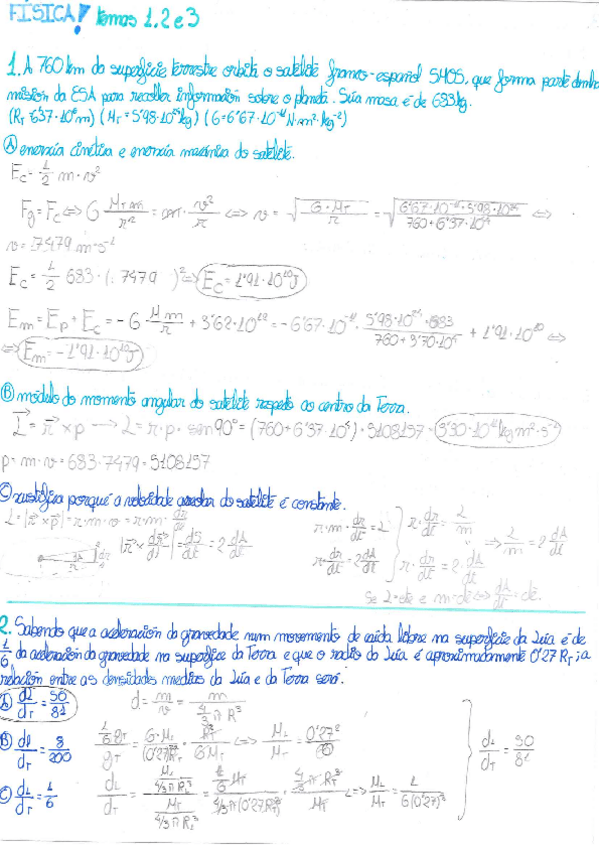 FÍSICA! temas 1, 2 e 3
1. A 760 km da superficie terrestre orbita o satélite franco-español SMOS, que forma parte dunha
misión da ESA para recoller información sobre o planeta. Súa masa é de 683 kg.
(R_T = 6'37·10⁶ m) (M_T = 5'98·10²⁴ kg) (G = 6'67·10⁻¹¹ N·m²·kg⁻²)
Ⓐ enerxía cinética e enerxía mecánica do satélite.
E_c = 1/2 m·v²
F_g = F_c ⟺ G M_T m/r² = m · v²/r ⟺ v = √(G·M_T/r) = √(6'67·10⁻¹¹·5'98·10²⁴/760+6'37·10⁶) ⟺
v = 7479 m·s⁻¹
E_c = 1/2 · 683 · (7479)² ⟺ E_c = 1'91·10¹⁰ J
E_m = E_p + E_c = -G · M m/r +
⟺ E_m = -1'91·10¹⁰ J
Ⓑ módulo do momento angular do satélite respecto ao centro da Terra.
L = r × p → L = r · p · sen 90° = (760+6'37·10⁶) · 5108157 =
p = m · v = 683 · 7479 = 5108157
Ⓒ xustifica porqué a velocidade areolar do satélite é constante.
L = |r × p| = r · m · v = r · m · dr/dt
r · m · dr/dt = L
|r × dr/dt| = dS/dt = 2 dA/dt
r · dr/dt = 2 dA/dt
r · dr/dt = L/m
r · dr/dt = 2 · dA/dt
→ L/m = 2 dA/dt
Se L = cte e m = cte ⟺ dA/dt = cte.
2. Sabendo que a aceleración da gravedade num movemento de caída libre na superficie da Lúa é de
1/6 da aceleración da gravedade na superficie da Terra e que o radio da Lúa é aproximadamente 0'27 R_T; a
relación entre as densidades medias da Lúa e da Terra será.
Ⓐ d_L/d_T = 50/81
d = m/v = m/(4/3 π R³)
Ⓑ d_L/d_T = 8/200
Ⓒ d_L/d_T = 1/6